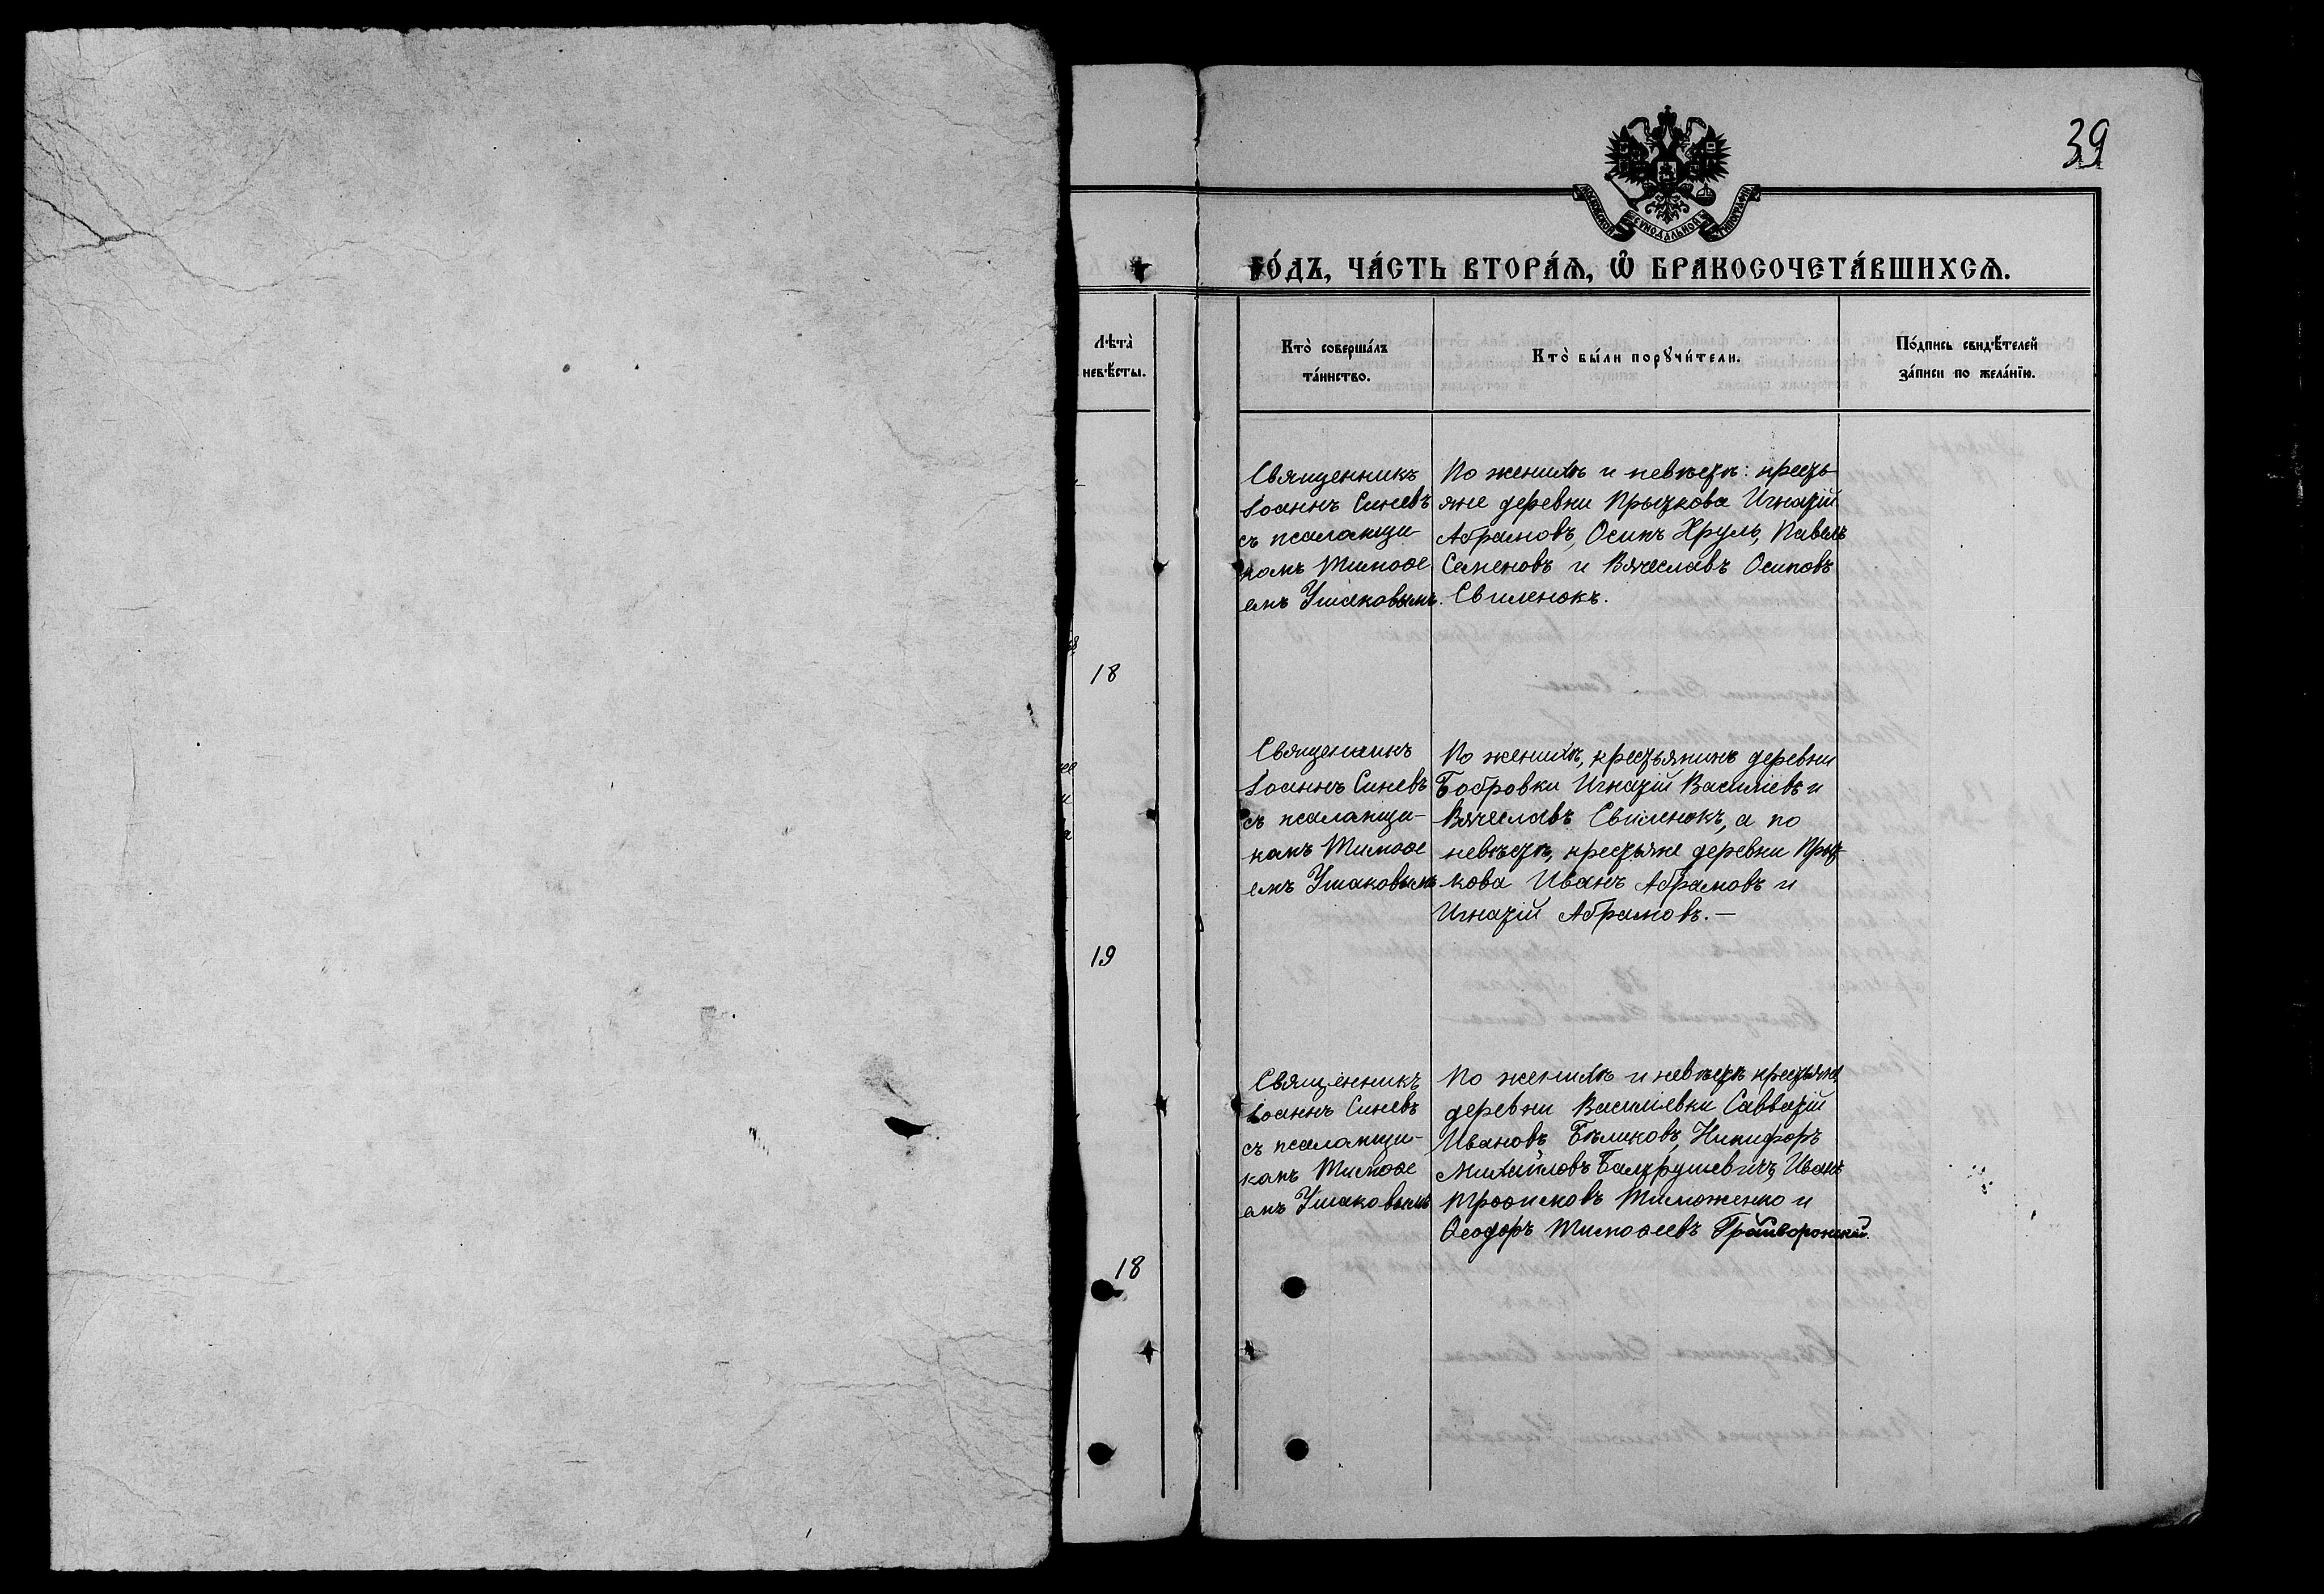 39
МОСКОВСКОЙ СѴНОДАЛЬНОЙ ТИПОГРАФІИ
ГО́ДЪ, ЧА́СТЬ ВТОРА́Ѧ, Ѽ БРАКОСОЧЕТА́ВШИХСѦ.
Лѣта̀
невѣ́сты.
Кто̀ соверша́лъ
та́инство.
Кто̀ бы́ли порꙋчи́тели.
По́дпись свидѣ́телей
за́писи по жела́нїю.
18
Священникъ
Іоаннъ Синевъ
съ псаломщи-
комъ Тимоѳе
емъ Ушаковымъ.
По женихѣ и невѣстѣ: кресть-
яне деревни Прыткова Игнатій
Абрамовъ, Осипъ Хруль, Павелъ
Семеновъ и Вячеславъ Осиповъ
Свиленокъ.
19
Священникъ
Іоаннъ Синевъ
съ псаломщи-
комъ Тимоѳе
емъ Ушаковымъ
По женихѣ, крестьянинъ деревни
Бобровки Игнатій Василіевъ и
Вячеславъ Свиленокъ, а по
невѣстѣ, крестьяне деревни Прыт
кова Иванъ Абрамовъ и
Игнатій Абрамовъ.—
18
Священникъ
Іоаннъ Синевъ
съ псаломщи-
комъ Тимоѳе
емъ Ушаковымъ
По женихѣ и невѣстѣ крестьяне
деревни Василіевки Савватій
Ивановъ Бѣликовъ, Никифоръ
Михайловъ Балтрушевичъ, Иванъ
Трофимовъ Тиможенко и
Ѳеодоръ Тимоѳеевъ Грайворонскій.